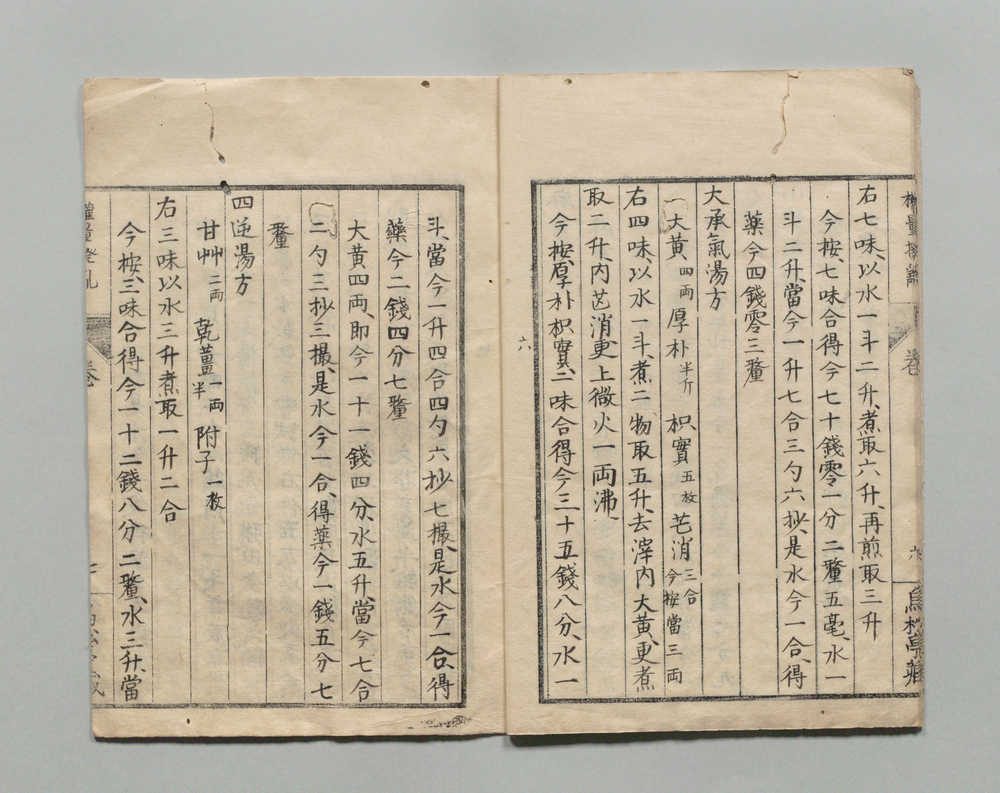 右七味以水一斗二升、煮取六升、再煎取三升
今按、七味合得今七十錢零一分二釐五毫、水一
斗二升、當今一升七合三勺六抄、是水今一合、得
藥今四錢零三釐
大承氣湯方
大黃四両 厚朴半斤 枳實五枚 芒消三合今按當三両
右四味、以水一斗、煮二物取五升、去滓内大黃、更煮
取二升、内芒消更上微火一両沸
今按、厚朴枳實二味合得今三十五錢八分、水一
六
斗、當今一升四合四勺六抄七撮、是水今一合、得
藥今二錢四分七釐
大黃四両、即今一十一錢四分、水五升、當今七合
二勺三抄三撮、是水今一合、得藥今一錢五分七
釐
四逆湯方
甘艸二両 乾薑一両半 附子一枚
右三味以水三升煮取一升二合
今按、三味合得今一十二錢八分二釐、水三升、當
卷